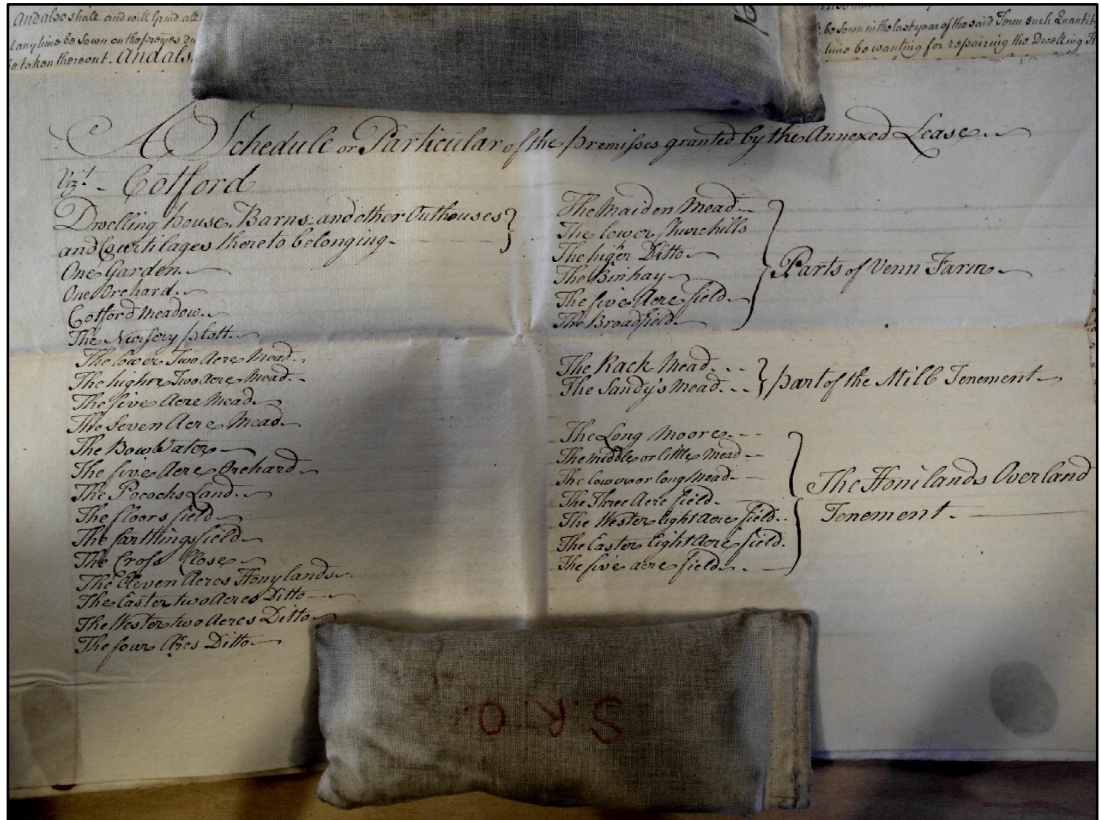 And also shall and will Grind all
any time be Sown on the premes
be taken thereout. And als
be Sown in the last year of the said Term such Quantity
time be wanting for repairing the Dwelling
A Schedule or Particular of the premisses granted by the Annexed Lease.
Vizt. Cotford
Dwelling house, Barns and other Outhouses
and Courtilages thereto belonging
One Garden
One Orchard
Cotford Meadow
The Nursery plott
The lower Two Acre Mead
The higher Two Acre Mead
The five Acre Mead
The Seven Acre Mead
The Bow Water
The five Acre Orchard
The Pococks Land
The floors field
The farthings field
The Cross Close
The Eleven Acres Honylands
The Easter two Acres Ditto
The Wester two Acres Ditto
The four Acres Ditto
The Maiden Mead
The lower Churchills
The higher Ditto
The Binhay
The five Acre field
The Broadfield
Parts of Venn Farm
The Rack Mead
The Sandy's Mead
part of the Mill Tenement
The Long Moore
The middle or little Mead
The lower or long Mead
The Three Acre field
The Wester Eight Acre field
The Easter Eight Acre field
The five acre field
The Honilands Overland
Tenement
S.R.O.